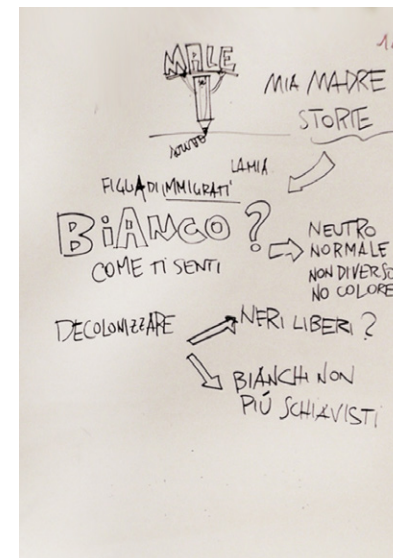 MALE
MIA MADRE
STORIE
SCRIVO
LA MIA
FIGLIA DI IMMIGRATI
BiANCO?
COME TI SENTI
NEUTRO
NORMALE
NON DIVERSO
NO COLORE
DECOLONIZZARE
NERI LIBERI?
BIANCHI NON
PIÚ SCHIAVISTI